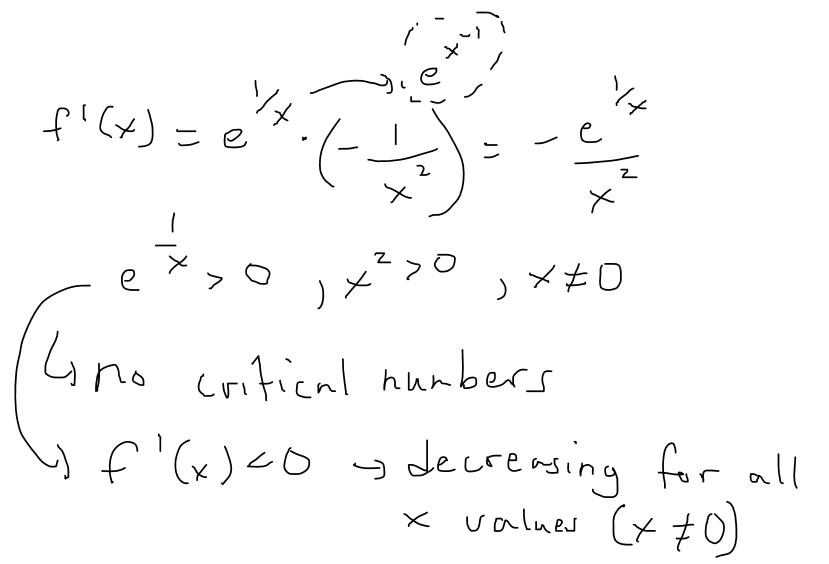 e^{x^{-1}}
f'(x) = e^{1/x} · (-\frac{1}{x^2}) = -\frac{e^{1/x}}{x^2}
e^{\frac{1}{x}} > 0 , x^2 > 0 , x ≠ 0
↳ no critical numbers
↳ f'(x) < 0 → decreasing for all
x values (x ≠ 0)